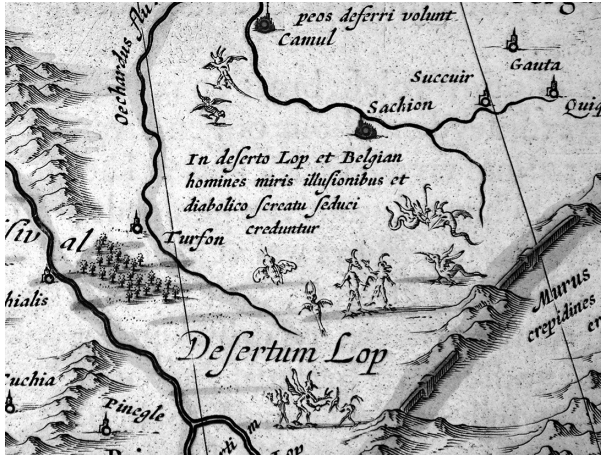 peos deferri volunt
Camul
Oechardus flu.
Gauta
Succuir
Sachion
In deserto Lop et Belgian
homines miris illusionibus et
diabolico screatu seduci
creduntur
Turfon
al
hialis
Murus
crepidines
Desertum Lop
Cuchia
Pingle
Lop